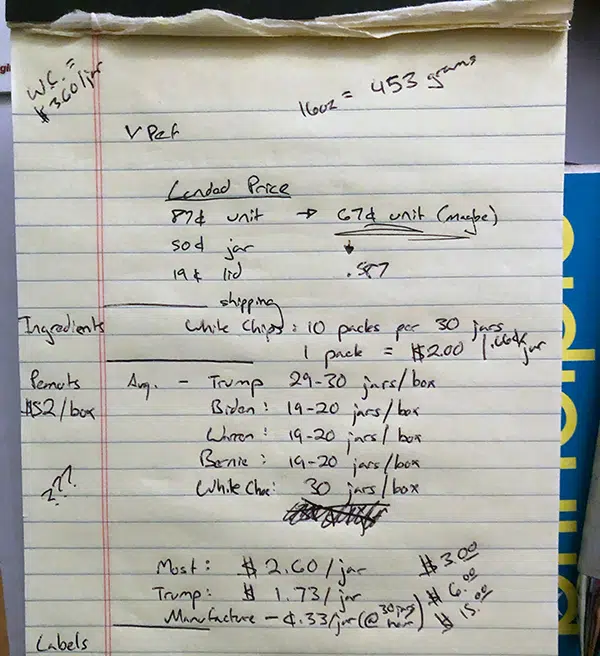 W.C. =
$3.60/jar
16oz = 453 grams
V Pef
Landed Price
87¢ unit → 67¢ unit (maybe)
50¢ jar
19¢ lid .587
shipping
Ingredients White Chips: 10 packs per 30 jars
1 pack = $2.00 jar
Peanuts Avg. - Trump 29-30 jars/box
$52/box Biden: 19-20 jars/box
Warren: 19-20 jars/box
Bernie: 19-20 jars/box
??? White Choc: 30 jars/box
Most: $2.60/jar $3.00
Trump: $1.73/jar $6.00
Manufacture - ¢.33/jar (@ 30 jars hour) $15.00
Labels